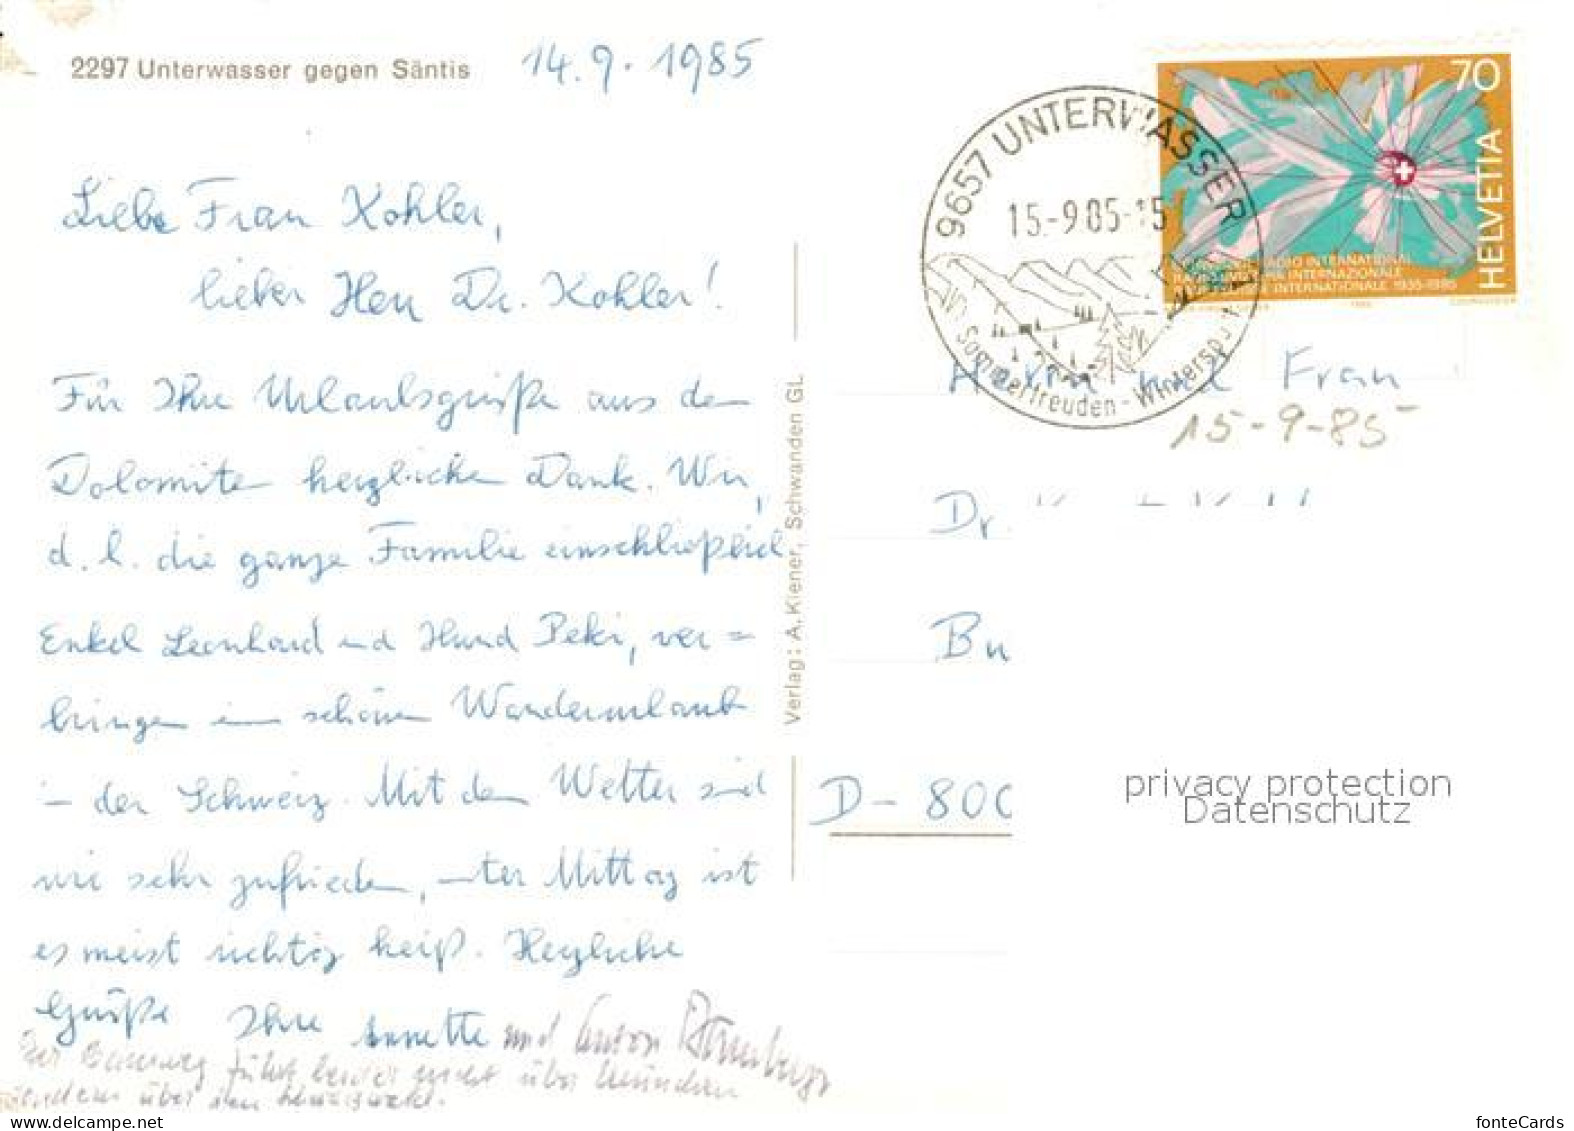 2297 Unterwasser gegen Säntis
14.9.1985
Liebe Frau Kohler,
lieber Herr Dr. Kohler!
Für Ihre Urlaubsgrüße aus den
Dolomiten herzlichen Dank. Wir,
d.h. die ganze Familie einschließlich
Enkel Leonhard und Hund Peki, ver=
bringen einen schönen Wanderurlaub
in der Schweiz. Mit dem Wetter sind
wir sehr zufrieden, unter Mittag ist
es meist richtig heiß. Herzliche
Grüße Ihre Annette und Anton
Der führt leider nicht über München
sondern über den
Verlag: A. Kiener, Schwanden GL
9657 UNTERWASSER
15.-9 85-15
Sommerfreuden - Wintersport
70
HELVETIA
RADIO INTERNATIONAL
INTERNAZIONALE
INTERNATIONALE 1935-1985
Frau
15-9-85
Dr.
Bu
D-800
privacy protection
Datenschutz
fonteCards